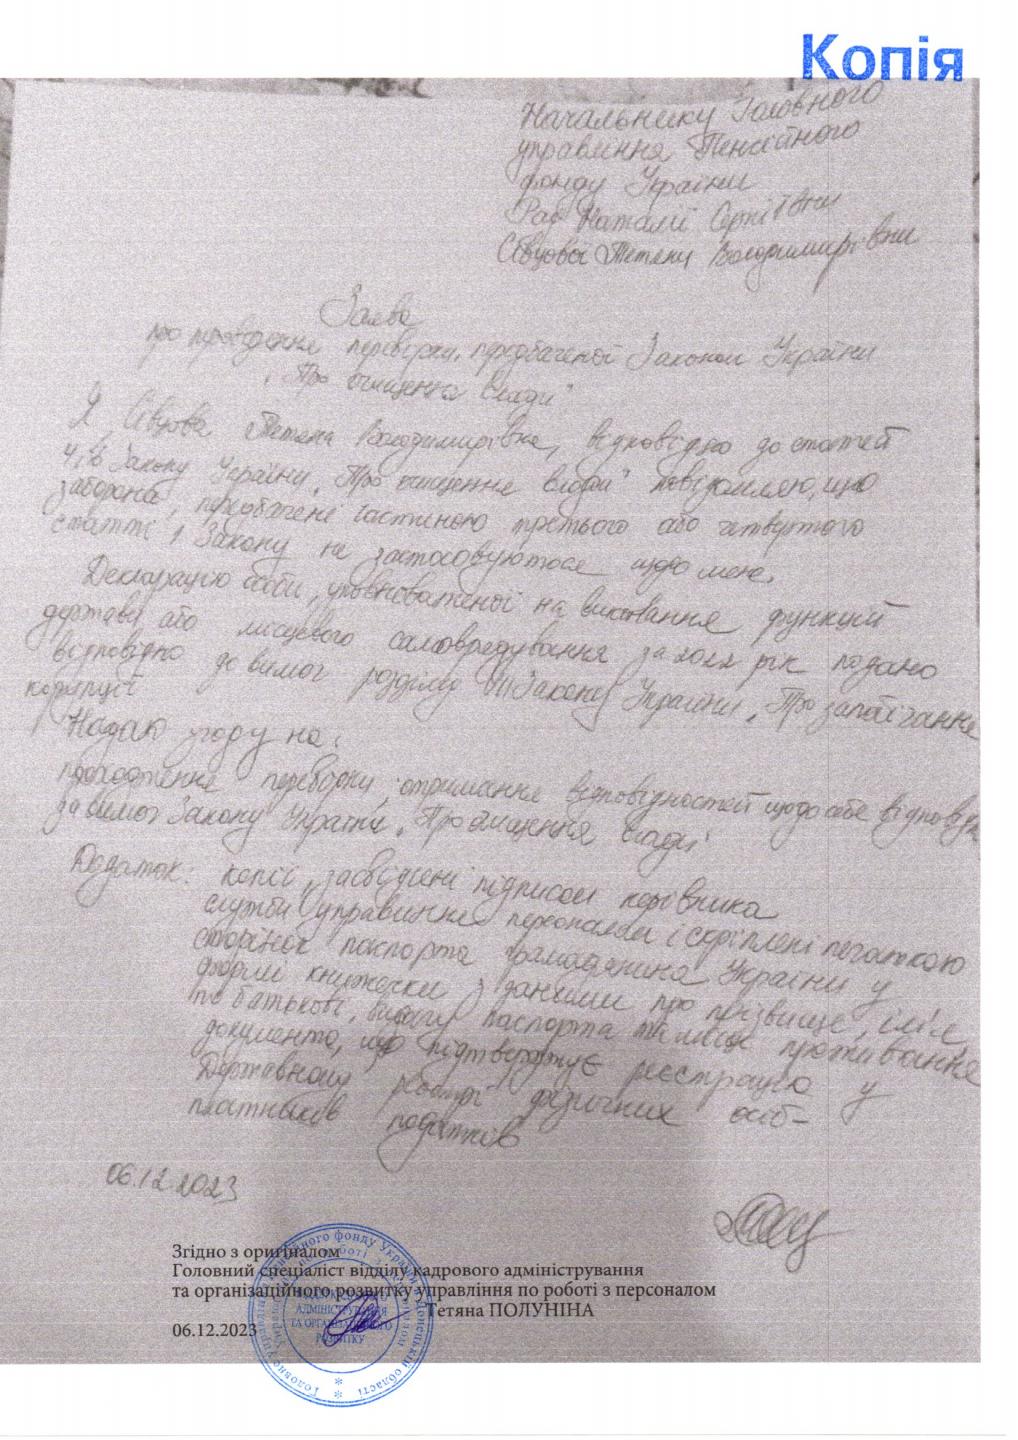 Копія
Начальнику Головного
управління Пенсійного
фонду України
Рад Наталії Сергіївни
Сівцової Тетяни Володимирівни
Заява
про проведення перевірки, передбаченої Законом України
"Про очищення влади"
Я, Сівцова Тетяна Володимирівна, відповідно до статей
4 Закону України "Про очищення влади" повідомляю, що
заборона, передбачені частиною третьою або четвертого
статті 1 Закону не застосовуються щодо мене.
Декларацію особи, уповноваженої на виконання функцій
держави або місцевого самоврядування за 2022 рік подано
відповідно до вимог розділу VII Закону України "Про запобігання
корупції
Надаю згоду на:
проходження перевірки, отримання відповідностей щодо себе відповідн
за вимог Закону України "Про очищення влади"
Додаток: копії, засвідчені підписом керівника
служби управління персоналом і скріплені печаткою
сторінок паспорта громадянина України у
формі книжечки з даними про прізвище, ім'я,
по батькові, видачу паспорта та місце проживання
документа, що підтверджує реєстрацію у
Державному реєстрі фізичних осіб-
платників податків
06.12.2023
Згідно з оригіналом
Головний спеціаліст відділу кадрового адміністрування
та організаційного розвитку управління по роботі з персоналом
Тетяна ПОЛУНІНА
06.12.2023
АДМІНІСТРУВАННЯ
ТА ОРГАНІЗАЦІЙНОГО
РОЗВИТКУ